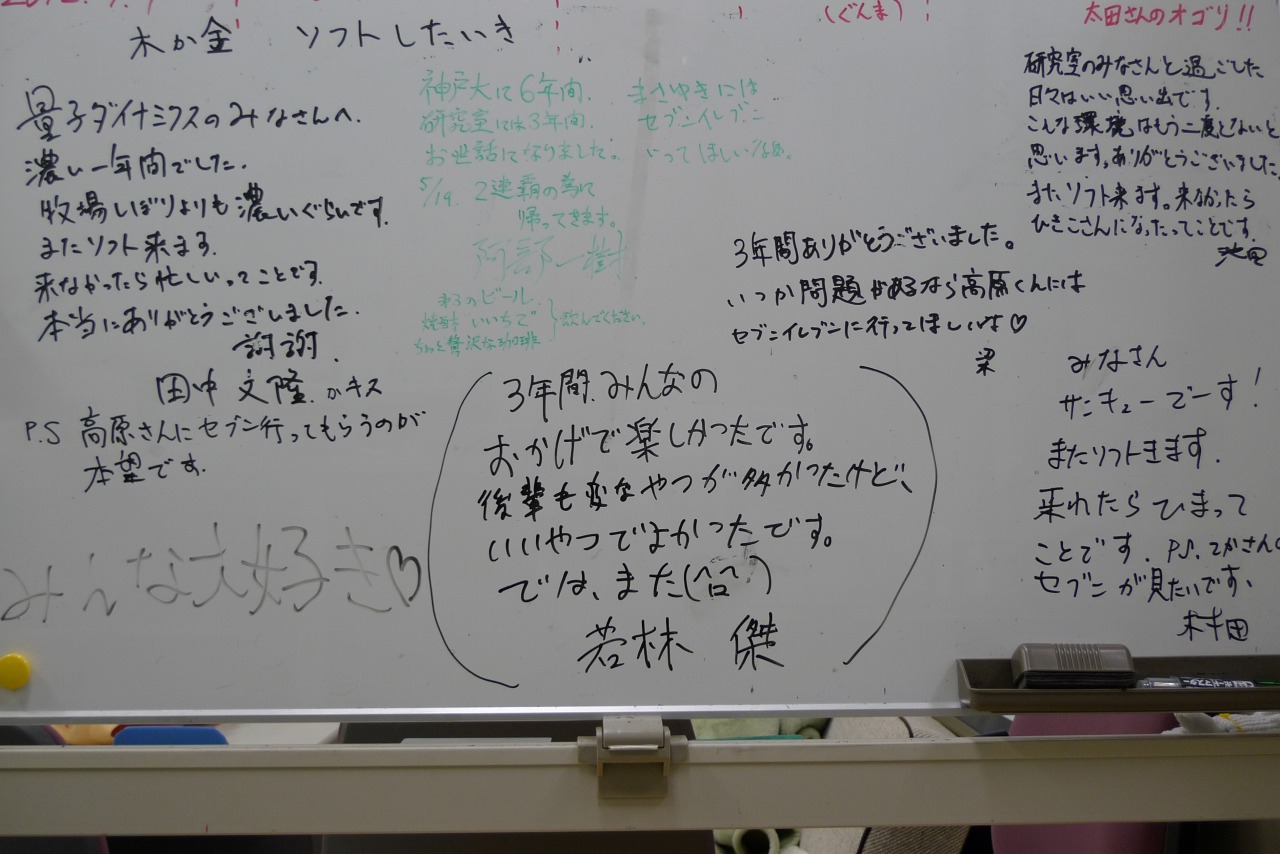 (ぐんま)
太田さんのオゴリ!!
木か金 ソフトしたいき
量子ダイナミクスのみなさんへ.
濃い一年間でした.
牧場しぼりよりも濃いぐらいです.
またソフト来ます.
来なかったら忙しいってことです.
本当にありがとうございました.
謝謝.
田中 文隆.
P.S 高原さんにセブン行ってもらうのが
本望です.
みんな大好き♡
神戸大に6年間.
研究室には3年間.
お世話になりました。
5/19. 2連覇の為に
帰ってきます。
阿部一樹
まさゆきには
セブンイレブン
いってほしいなぁ.
ビール.
いいちこ
ちょっと贅沢な珈琲
飲んでください.
3年間ありがとうございました。
いつか問題があるなら高原くんには
セブンイレブンに行ってほしいな♡
梁
(3年間.みんなの
おかげで楽しかったです。
後輩も変なやつが多かったけど、
いいやつでよかったです。
では、また(^○^)
若林 傑)
研究室のみなさんと過ごした
日々はいい思い出です.
こんな環境はもう二度とないと
思います。ありがとうございました.
また、ソフト来ます。来なかったら
ひきこさんになったってことです.
池田
みなさん
サンキューでーす!
またソフトきます.
来れたらひまって
ことです. P.S.
セブンが見たいです、
村田